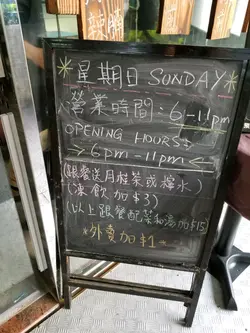 星期日 SUNDAY
營業時間: 6-11pm
OPENING HOURS:
6pm-11pm
(跟餐送月桂茶或檸水)
(凍飲加$3)
(以上跟餐配菜和湯加$15)
*外賣加$1*